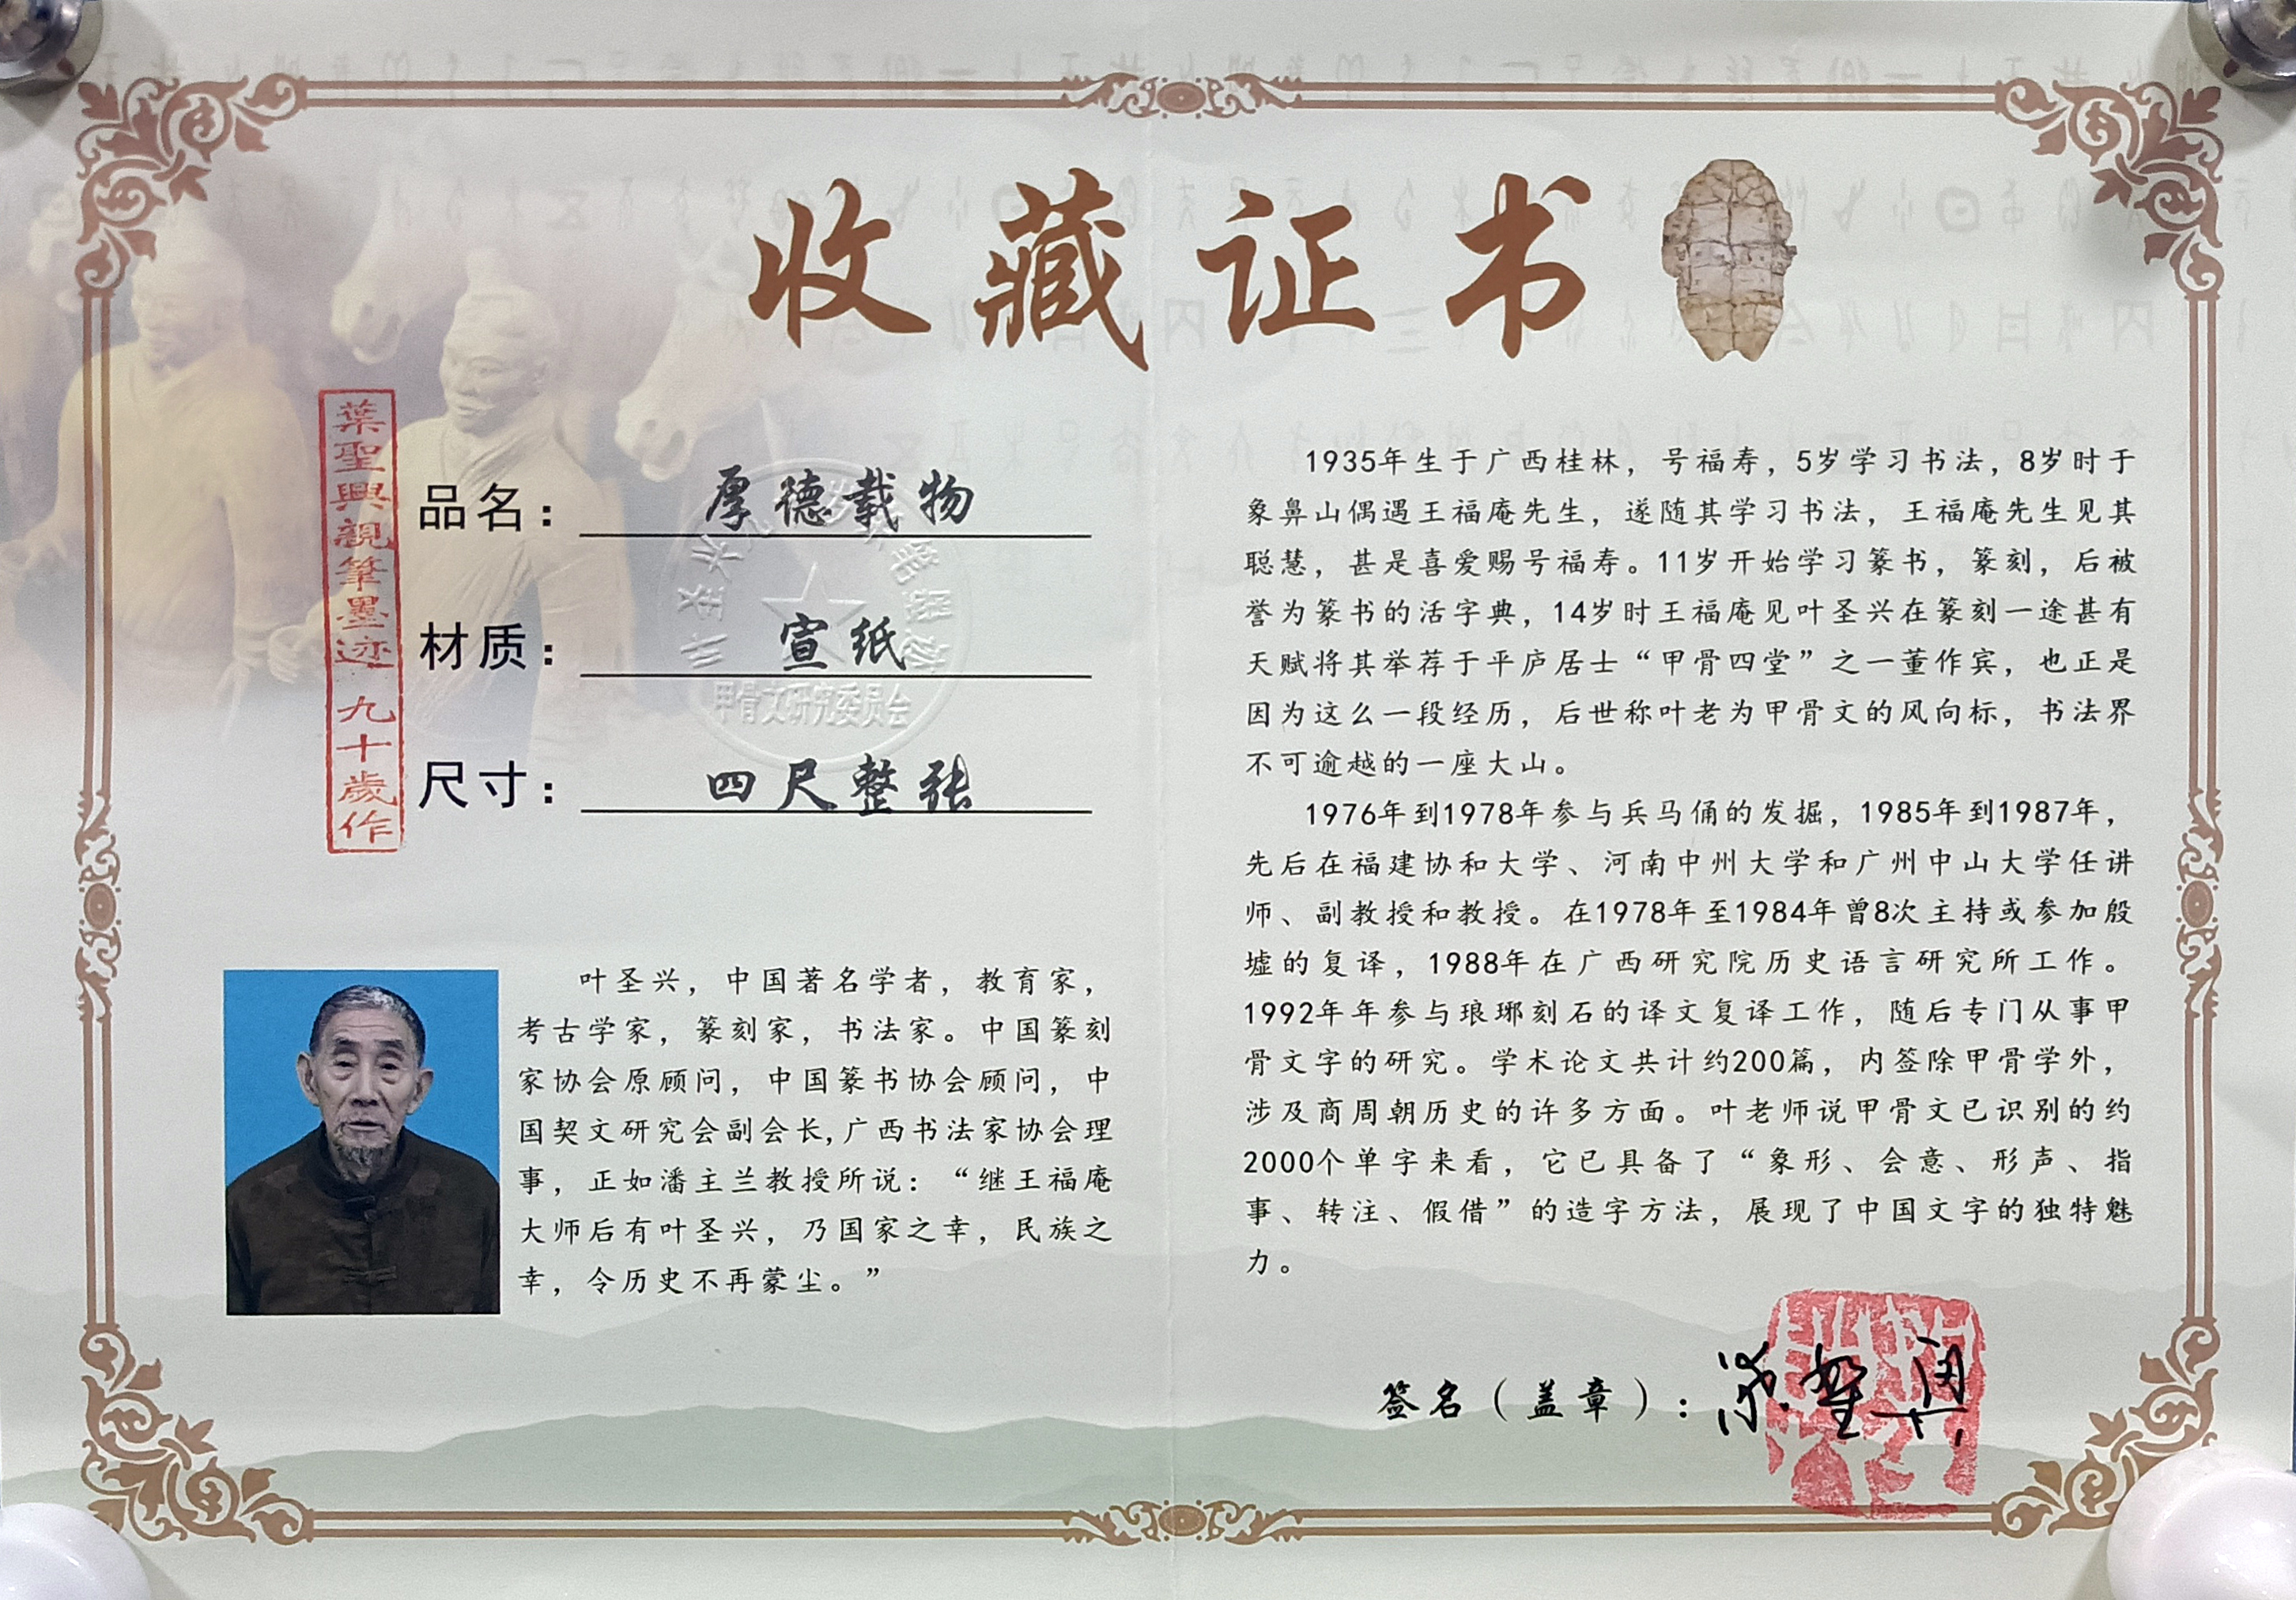 收藏证书
葉聖興親筆墨迹 九十歲作
品名：厚德载物
材质：宣纸
尺寸：四尺整张
甲骨文研究委员会
叶圣兴，中国著名学者，教育家，
考古学家，篆刻家，书法家。中国篆刻
家协会原顾问，中国篆书协会顾问，中
国契文研究会副会长,广西书法家协会理
事，正如潘主兰教授所说：“继王福庵
大师后有叶圣兴，乃国家之幸，民族之
幸，令历史不再蒙尘。”
1935年生于广西桂林，号福寿，5岁学习书法，8岁时于
象鼻山偶遇王福庵先生，遂随其学习书法，王福庵先生见其
聪慧，甚是喜爱赐号福寿。11岁开始学习篆书，篆刻，后被
誉为篆书的活字典，14岁时王福庵见叶圣兴在篆刻一途甚有
天赋将其举荐于平庐居士“甲骨四堂”之一董作宾，也正是
因为这么一段经历，后世称叶老为甲骨文的风向标，书法界
不可逾越的一座大山。
1976年到1978年参与兵马俑的发掘，1985年到1987年，
先后在福建协和大学、河南中州大学和广州中山大学任讲
师、副教授和教授。在1978年至1984年曾8次主持或参加殷
墟的复译，1988年在广西研究院历史语言研究所工作。
1992年年参与琅琊刻石的译文复译工作，随后专门从事甲
骨文字的研究。学术论文共计约200篇，内签除甲骨学外，
涉及商周朝历史的许多方面。叶老师说甲骨文已识别的约
2000个单字来看，它已具备了“象形、会意、形声、指
事、转注、假借”的造字方法，展现了中国文字的独特魅
力。
签名（盖章）：葉聖興